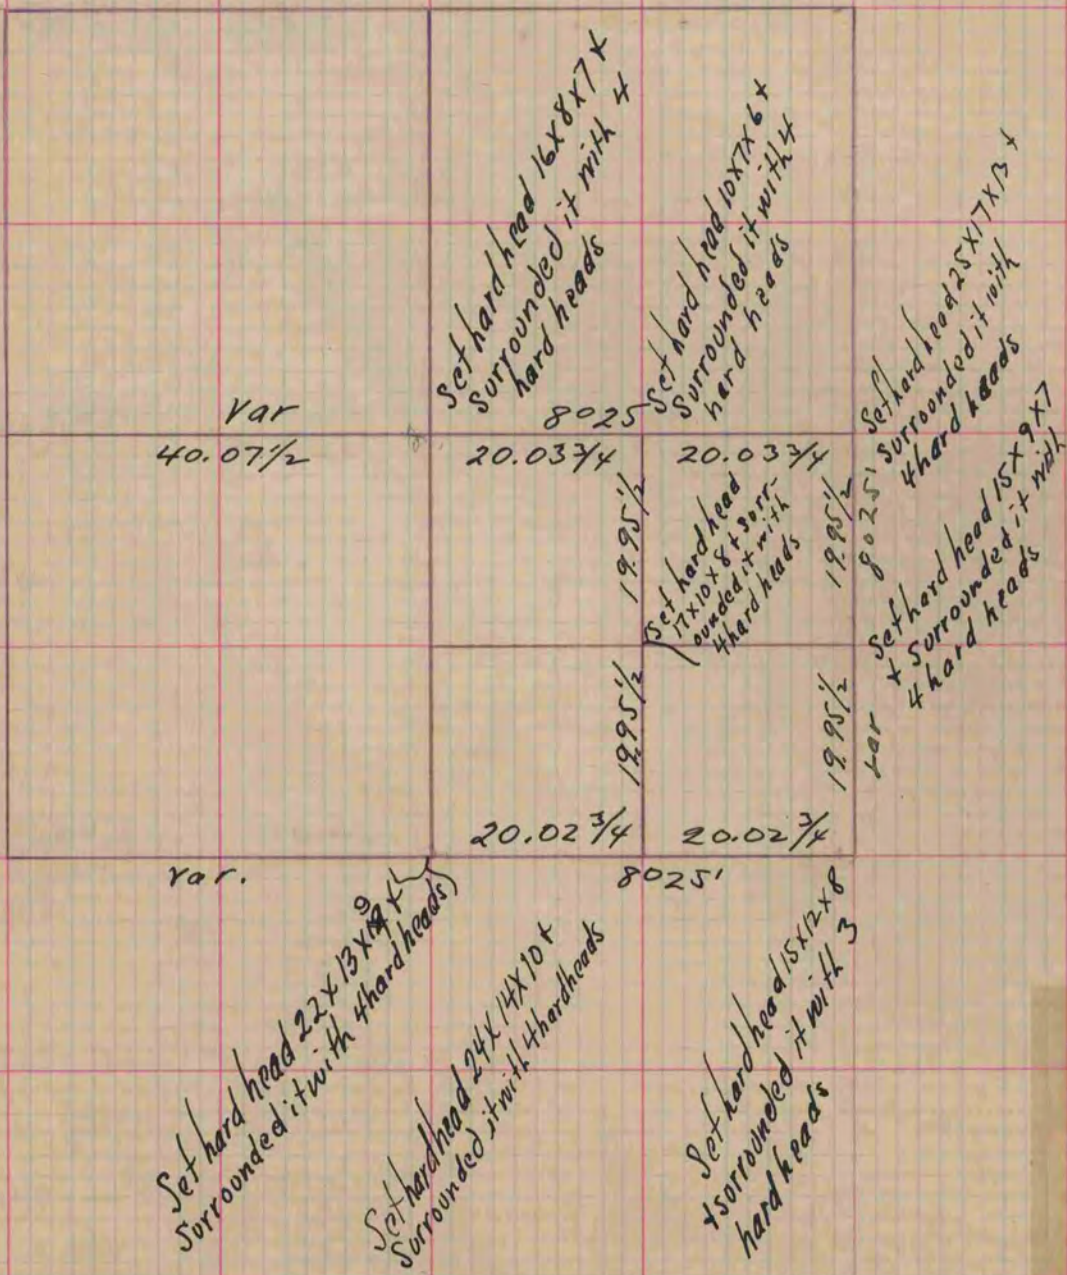 Set hard head 16X8X7 +
Surrounded it with 4
hard heads
Set hard head 10X7X6 +
Surrounded it with 4
hard heads
Set hard head 25X17X13 +
Surrounded it with
4 hard heads
Var
8025
40.07 1/2
20.03 3/4
20.03 3/4
19.95 1/2
Set hard head
17X10X8 + Surr-
ounded it with
4 hard heads
19.95 1/2
8025'
Set hard head 15X9X7
+ Surrounded it with
4 hard heads
19.95 1/2
19.95 1/2
Var
20.02 3/4
20.02 3/4
Var.
8025'
Set hard head 22X13X9 +
Surrounded it with 4 hard heads
Set hard head 24X14X10 +
Surrounded it with 4 hard heads
Set hard head 15X12X8
+ sorrounded it with 3
hard heads